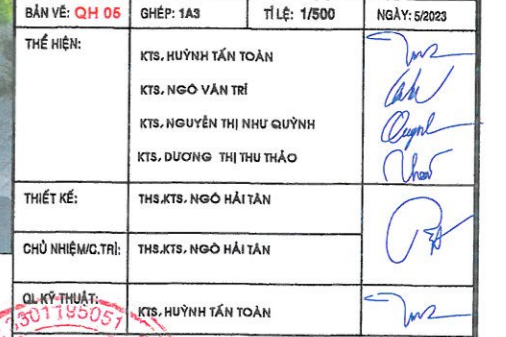 BẢN VẼ: QH 05 GHÉP: 1A3 TỈ LỆ: 1/500 NGÀY: 5/2023
THỂ HIỆN:
KTS. HUỲNH TẤN TOÀN
KTS. NGÔ VĂN TRÍ
KTS. NGUYỄN THỊ NHƯ QUỲNH
Quynh
KTS. DƯƠNG THỊ THU THẢO
Thao
THIẾT KẾ: THS.KTS. NGÔ HẢI TÂN
CHỦ NHIỆM/C.TRÌ: THS.KTS. NGÔ HẢI TÂN
QL KỸ THUẬT: KTS. HUỲNH TẤN TOÀN
3301795051